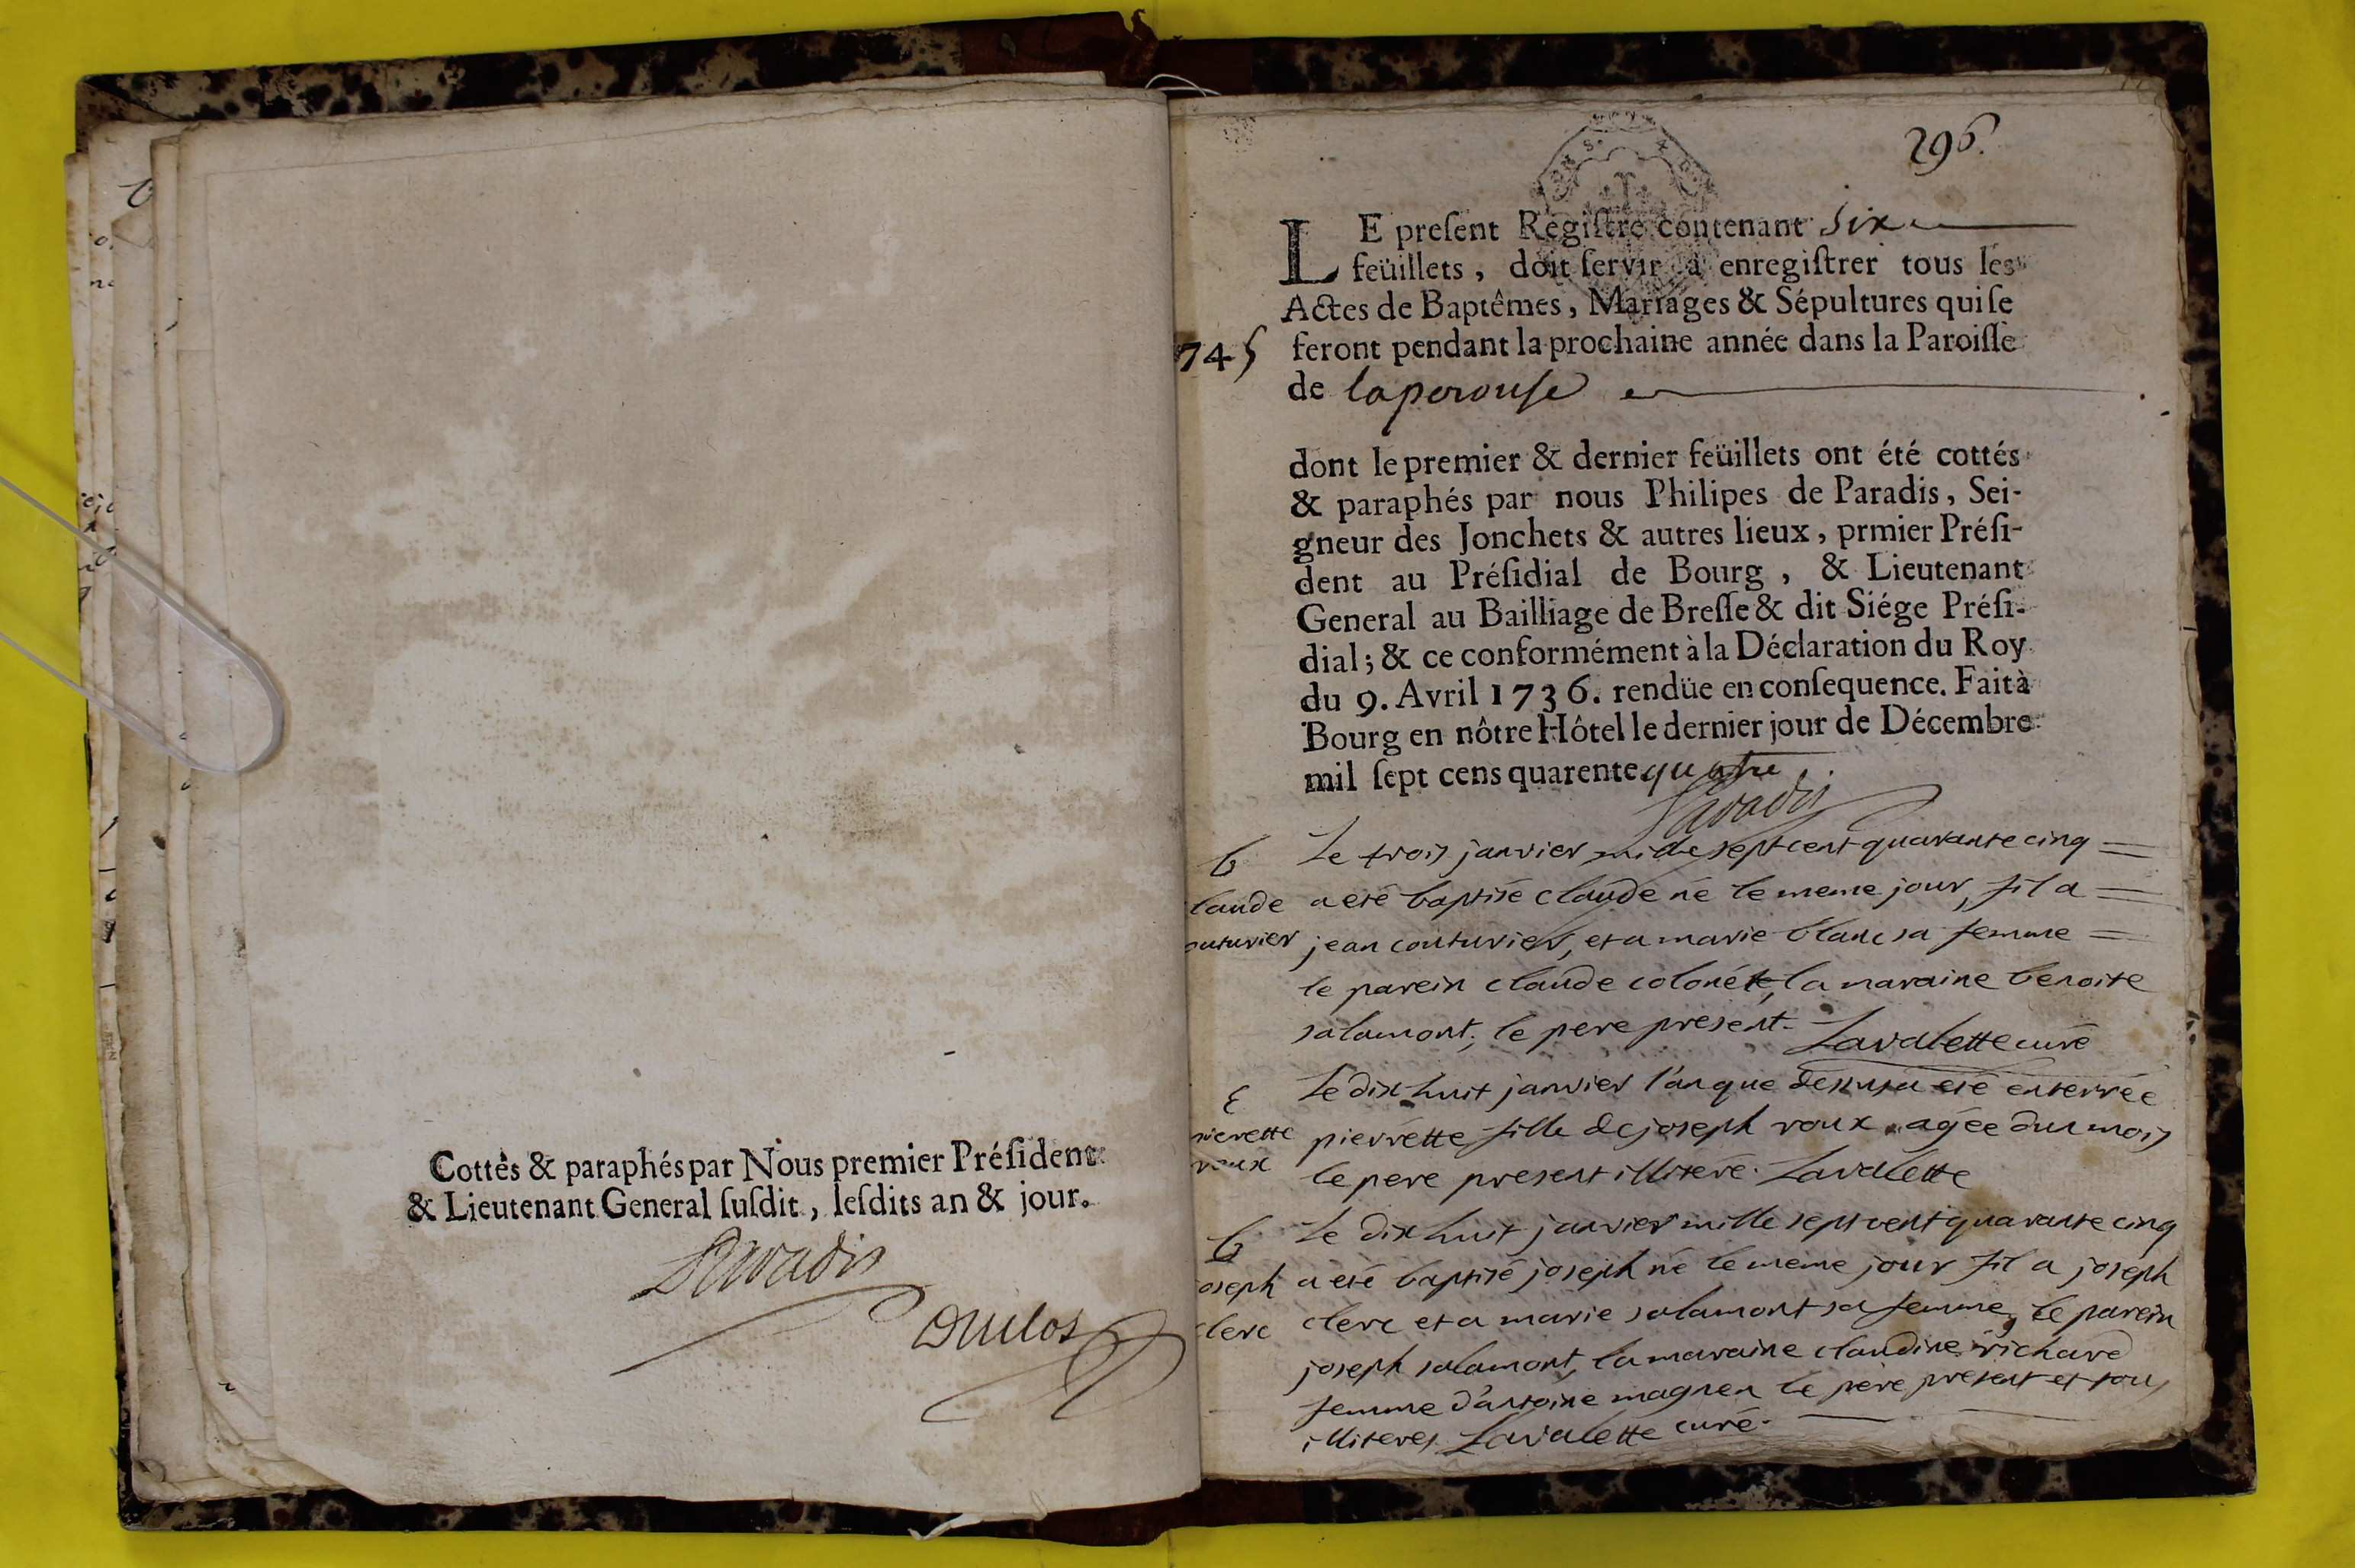 Cottés & paraphés par Nous premier Préſident
& Lieutenant General ſuſdit, leſdits an & jour.
Paradis
Duclos
296.
LE preſent Regiſtre contenant six
feüillets, doit ſervir à enregiſtrer tous les
Actes de Baptêmes, Mariages & Sépultures qui ſe
745 feront pendant la prochaine année dans la Paroiſſe
de laperouse
dont le premier & dernier feüillets ont été cottés
& paraphés par nous Philipes de Paradis, Sei-
gneur des Jonchets & autres lieux, prmier Préſi-
dent au Préſidial de Bourg, & Lieutenant
General au Bailliage de Breſſe & dit Siége Préſi-
dial; & ce conformément à la Déclaration du Roy
du 9. Avril 1736. rendüe en conſequence. Fait à
Bourg en nôtre Hôtel le dernier jour de Décembre
mil ſept cens quarente quatre.
Paradis
b Le trois janvier mille sept cent quarante cinq
laude a eté baptisé claude né le meme jour, fil a
outurier jean couturier, et a marie blanc sa femme
le parein claude la maraine benoite
salamont, le pere present. Lavalette curé
E Le dix huit janvier l'an que dessus a eté enterrée
pierette pierrette fille de joseph roux agée d'un mois
roux le pere present illiteré. Lavalette
b Le dix huit janvier mille sept cent quarante cinq
oseph a eté baptisé joseph né le meme jour fil a joseph
clerc clerc et a marie salamont sa femme, le parein
joseph salamont, la maraine claudine richard
femme d'antoine magnen le pere present et tous
illiteres Lavalette curé.